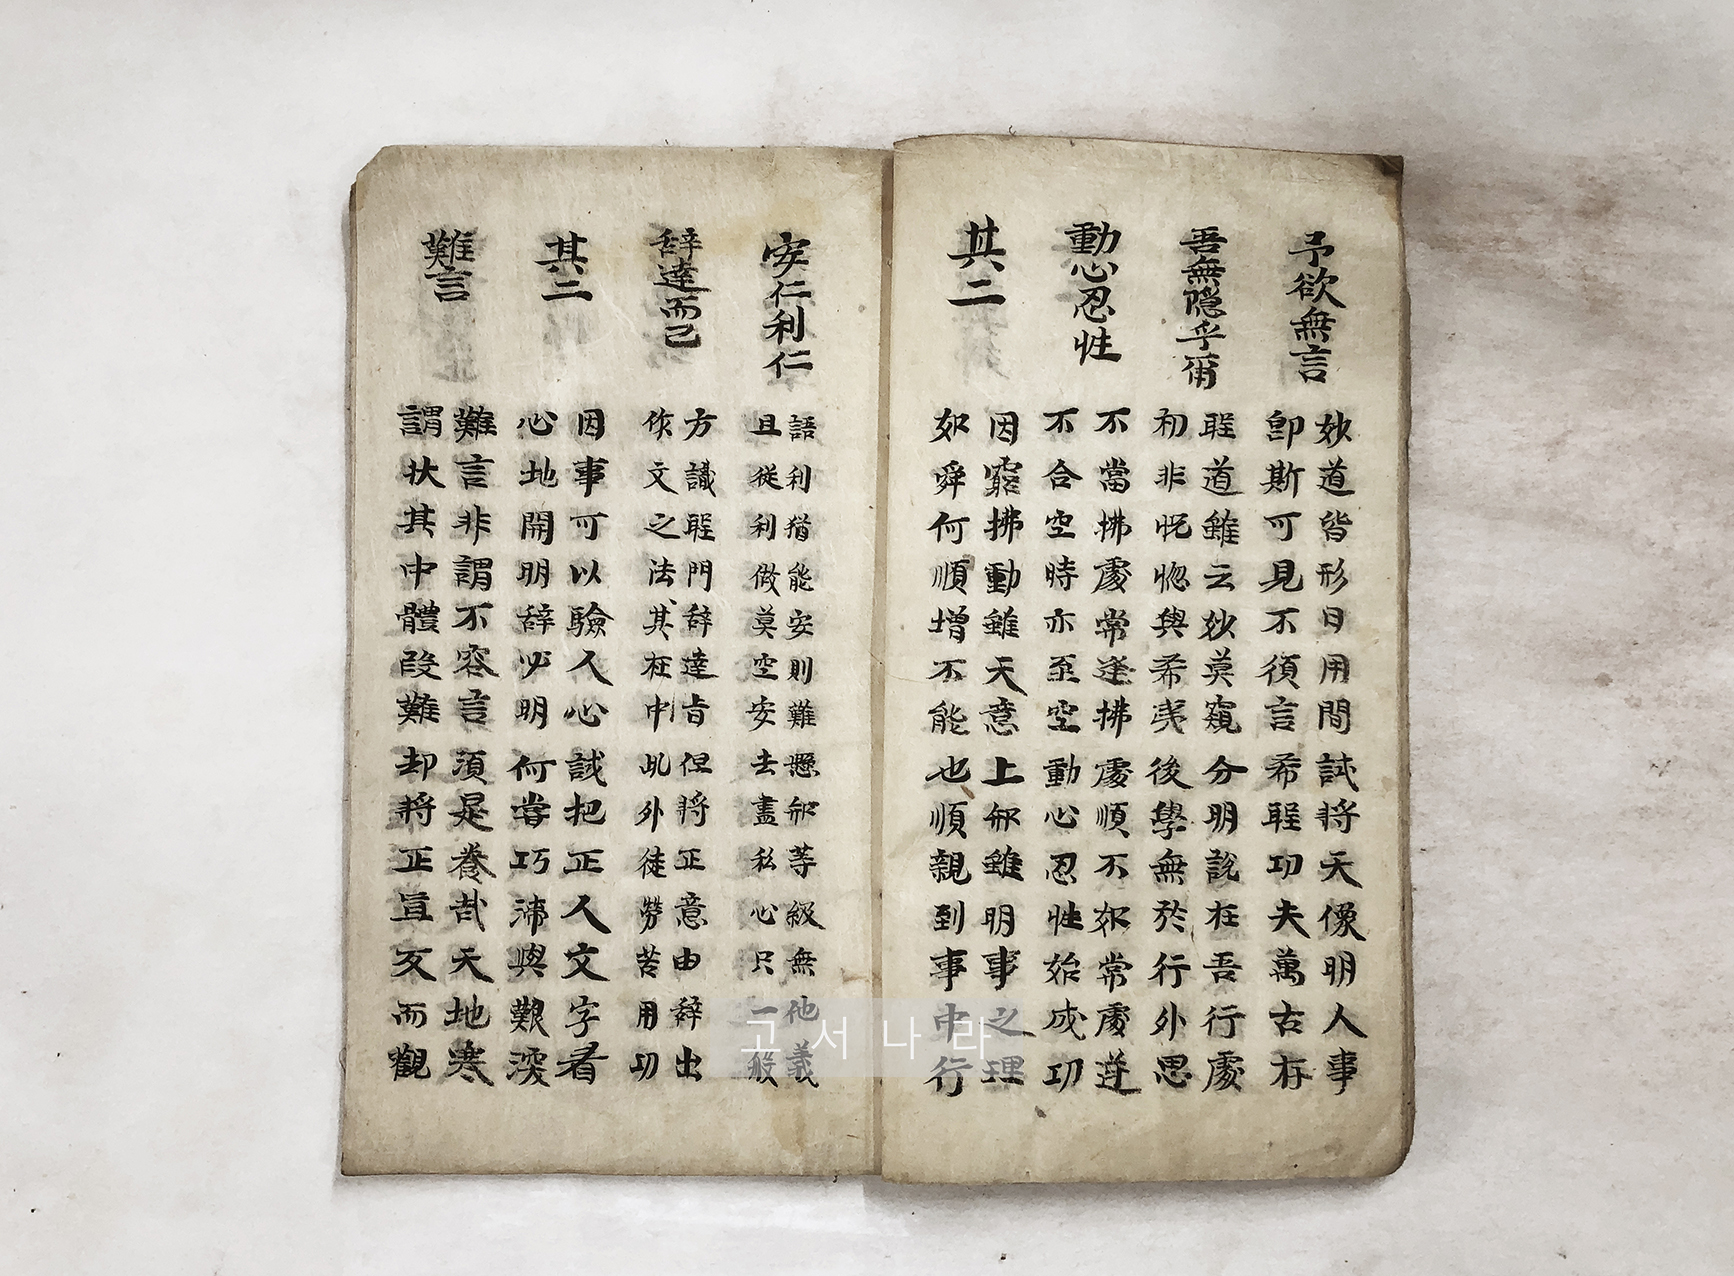 予欲無言
妙道皆形日用間試將天像明人事
即斯可見不須言希聖功夫萬古存
吾無隠乎爾
聖道雖云妙莫窺分明說在吾行處
初非恍惚與希夷後學無於行外思
動心忍性
不當拂處常逢拂處順不如常處逢
不合空時亦至空動心忍性始成功
其二
因窮拂動雖天意上知雖明事之理
如舜何順増不能也順親到事中行
安仁利仁
語利猶能安則難懸知等級無他義
且從利做莫空安去盡私心只一般
辞達而已
方識聖門辞達旨但將正意由辞出
作文之法其在中此外徒勞苦用功
其二
因事可以驗人心誠把正人文字看
心地開明辞必明何嘗巧滯與艱深
難言
難言非謂不容言須是養哉天地寒
謂狀其中體段難却將正直反而觀
고서나라